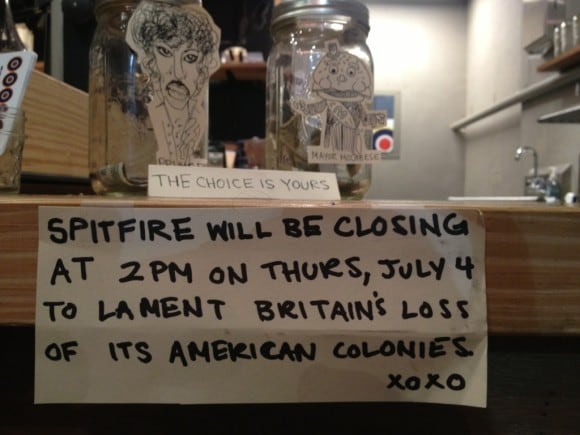 PRINCE
MAYOR MCCHEESE
THE CHOICE IS YOURS
SPITFIRE WILL BE CLOSING
AT 2PM ON THURS, JULY 4
TO LAMENT BRITAIN'S LOSS
OF ITS AMERICAN COLONIES.
XOXO